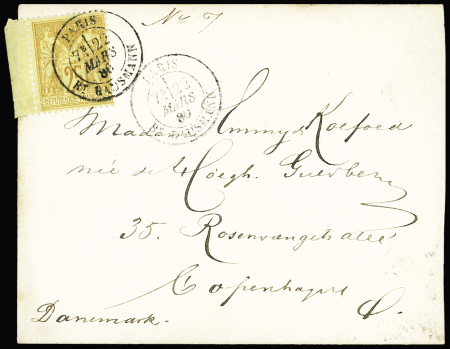 No 7
PARIS
7E 22
MARS
80
Bd HAUSMANN
PARIS
7E 22
MARS
80
Bd HAUSMANN
Madame Emmy Koefoed
née de Höegh Guldberg
35. Rosenvængets allée
Copenhague
Danemark. C.